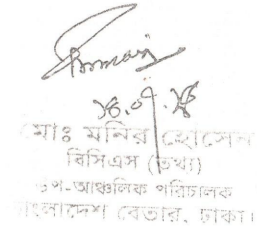 মোঃ মনির হোসেন
বিসিএস (তথ্য)
উপ-আঞ্চলিক পরিচালক
বাংলাদেশ বেতার, ঢাকা।